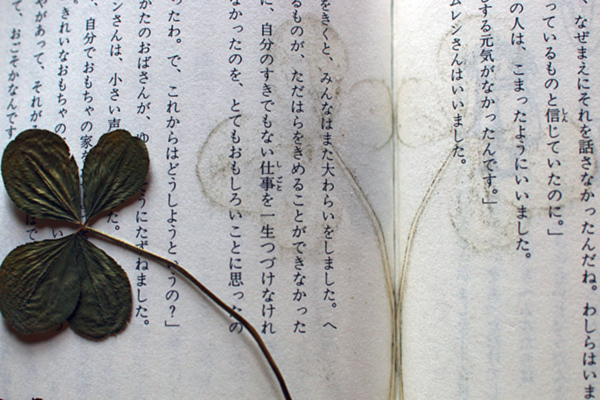 、なぜまえにそれを話さなかったんだね。わしらはいま
っているものと信じていたのに。」
の人は、こまったようにいいました。
する元気がなかったんです。」
ムレンさんはいいました。
をきくと、みんなはまた大わらいをしました。ヘ
るものが、ただはらをきめることができなかった
に、自分のすきでもない仕事を一生つづけなけれ
なかったのを、とてもおもしろいことに思ったの
ったわ。で、これからはどうしようと、うの？」
かたのおばさんが、ゆ うにたずねました。
ンさんは、小さい声 た。
、自分でおもちゃの家
きれいなおもちゃの
やがあって、それが
て、おごそかなんです